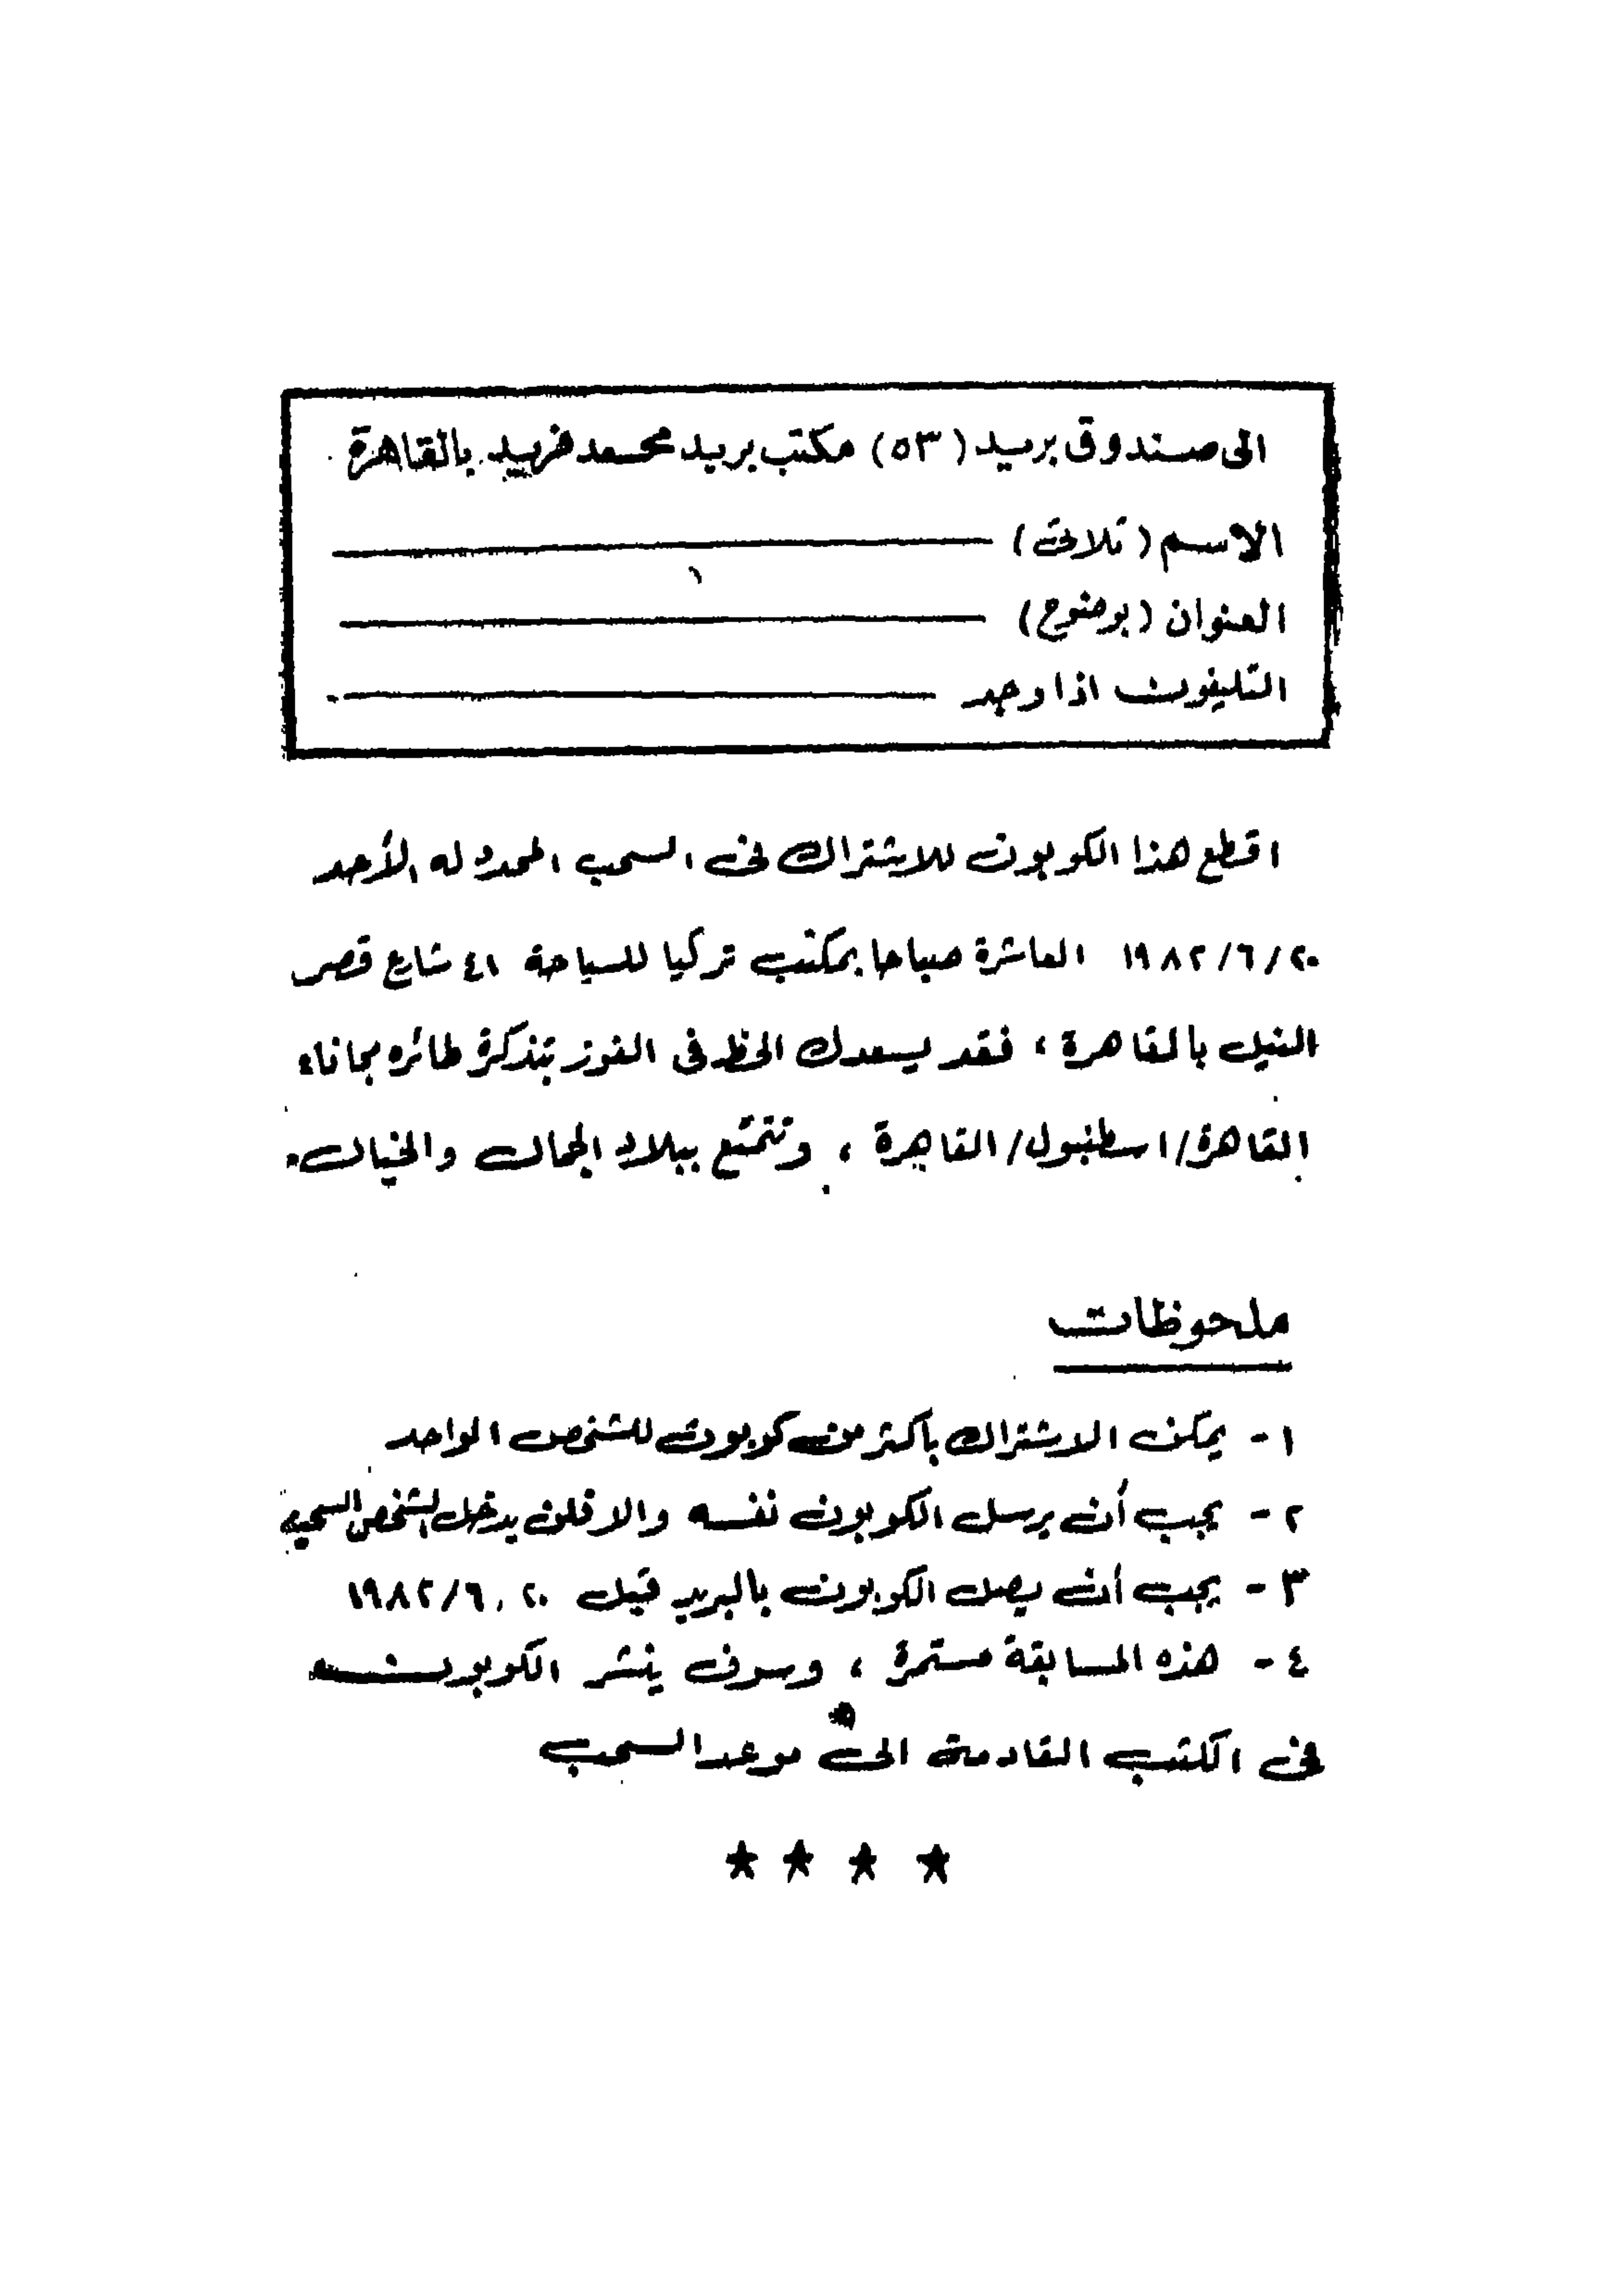 الى صندوق بريد (٥٣) مكتب بريد محمد فريد بالقاهرة
الاسم (ثلاثى)
العنوان (بوضوح)
التليفون اذا وجد
اقطع هذا الكوبون للاشتراك فى السحب المحدد له الأحد
٢٠/٦/١٩٨٢ العاشرة صباحا بمكتب تركيا للسياحة ٤١ شارع قصر
النيل بالقاهرة ، فقد يسعدك الحظ فى الفوز بتذكرة طائره مجاناء
القاهرة/اسطنبول/القاهرة ، وتتمتع ببلاد الجمال والخيال.
ملحوظات
١ - يمكن الاشتراك بأكثر من كوبون للشخص الواحد
٢ - يجب أن يرسل الكوبون نفسه والا فلن يدخل الشخص السحب
٣ - يجب أن يصل الكوبون بالبريد قبل ٢٠/٦/١٩٨٢
٤ - هذه المسابقة مستمرة ، وسوف ينشر الكوبون
فى الكتب القادمة الى موعد السحب